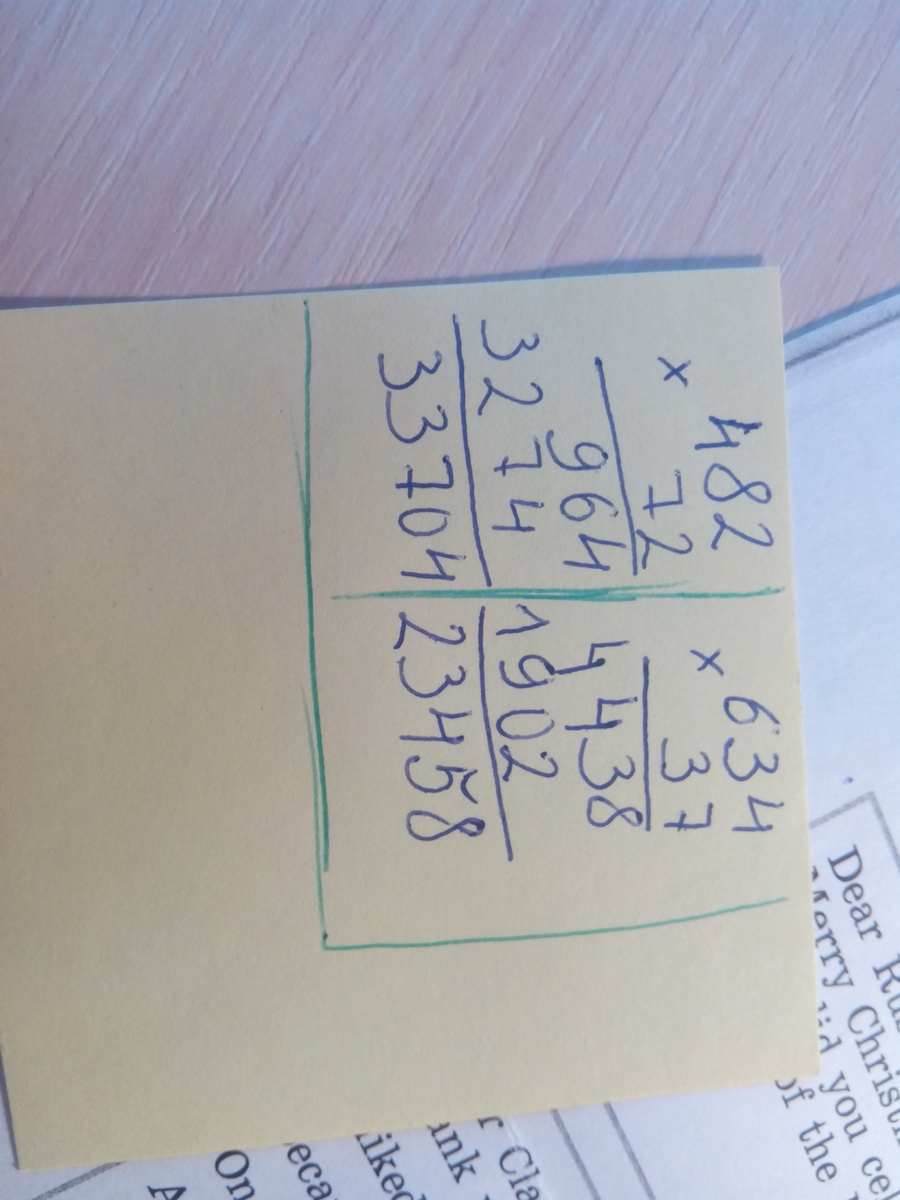 × 482
72
964
3274
33704
× 634
37
4438
1902
23458
Dear
Merry Christ
you cel
of the
r Cla
ank
liked
ecа
On
A